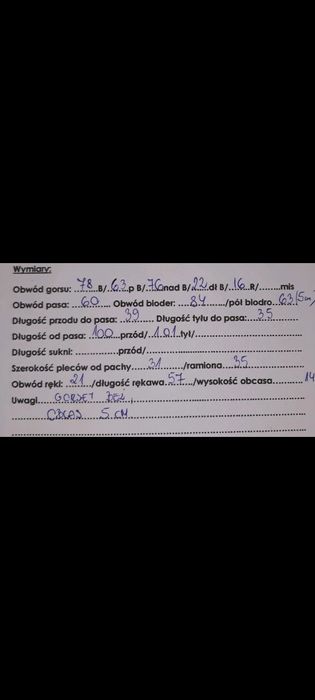 Wymiary:
Obwód gorsu: 78 B/ 63 p B/ 76 nad B/ 22 dł B/ 16 R/ mis
Obwód pasa: 60 Obwód bioder: 84 /pół biodro 63 15cm
Długość przodu do pasa: 39 Długość tyłu do pasa: 35
Długość od pasa: 100 przód/ 101 tył/
Długość sukni: przód/
Szerokość pleców od pachy 31 /ramiona 35
Obwód ręki: 21 /długość rękawa 57 /wysokość obcasa 14
Uwagi GORSET
OBCAS 5 CM